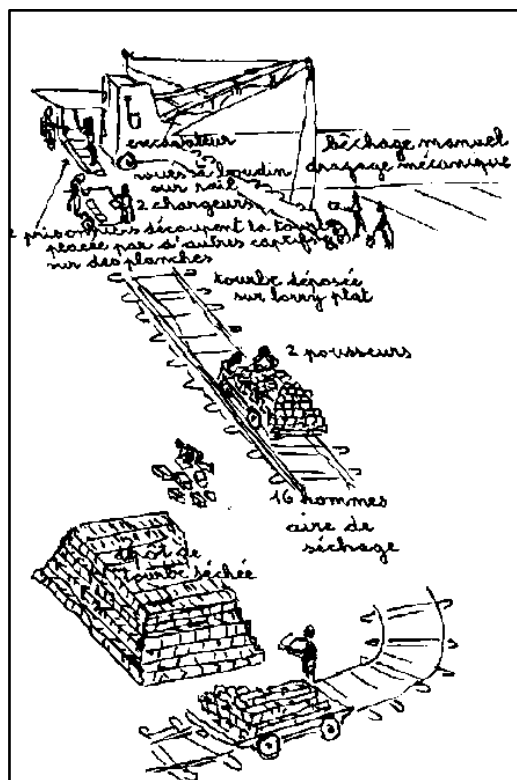 excavateur
bêchage manuel
dragage mécanique
roues à boudin
sur rail
2 chargeurs
prisonniers découpent la tourbe
placée par d'autres captifs
sur des planches
tourbe déposée
sur lorry plat
2 pousseurs
16 hommes
aire de
séchage
de
tourbe séchée